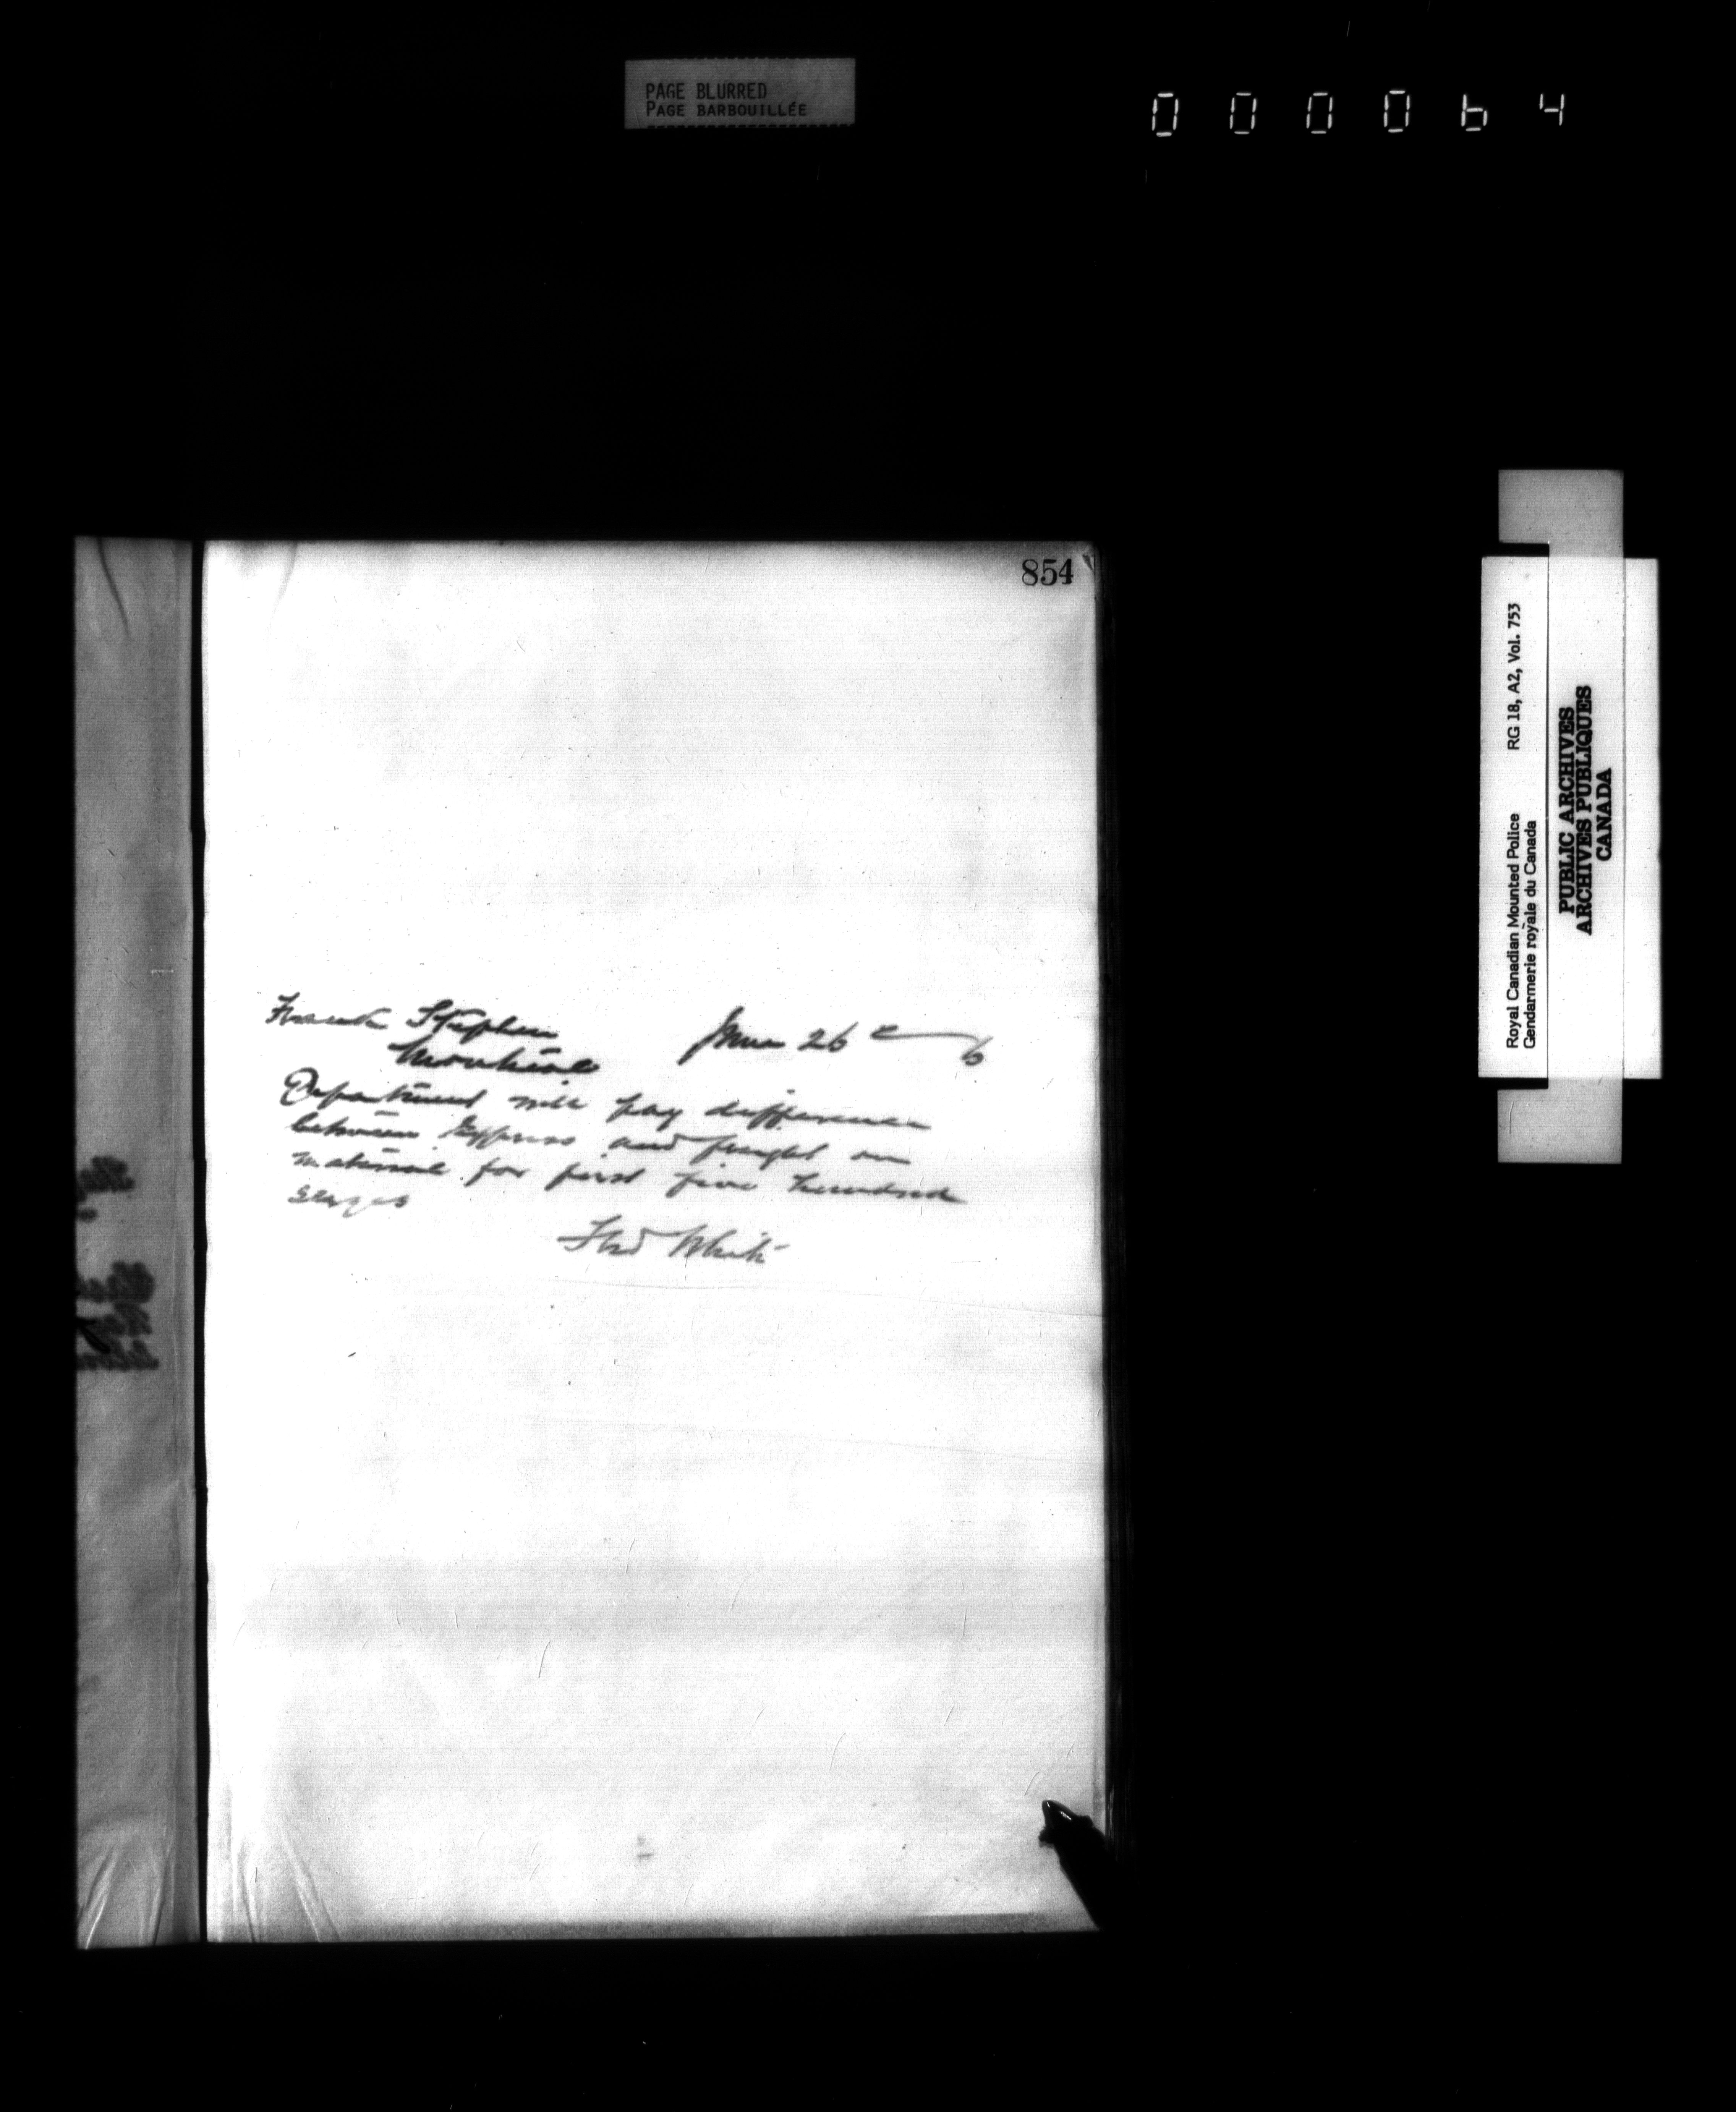 PAGE BLURRED
PAGE BARBOUILLÉE
000064
854
Frank Stephen
Montreal
June 26
6
Department will pay difference
between Express and freight on
material for first five hundred
Serges
Fred White
Royal Canadian Mounted Police RG 18, A2, Vol. 753
Gendarmerie royale du Canada
PUBLIC ARCHIVES
ARCHIVES PUBLIQUES
CANADA